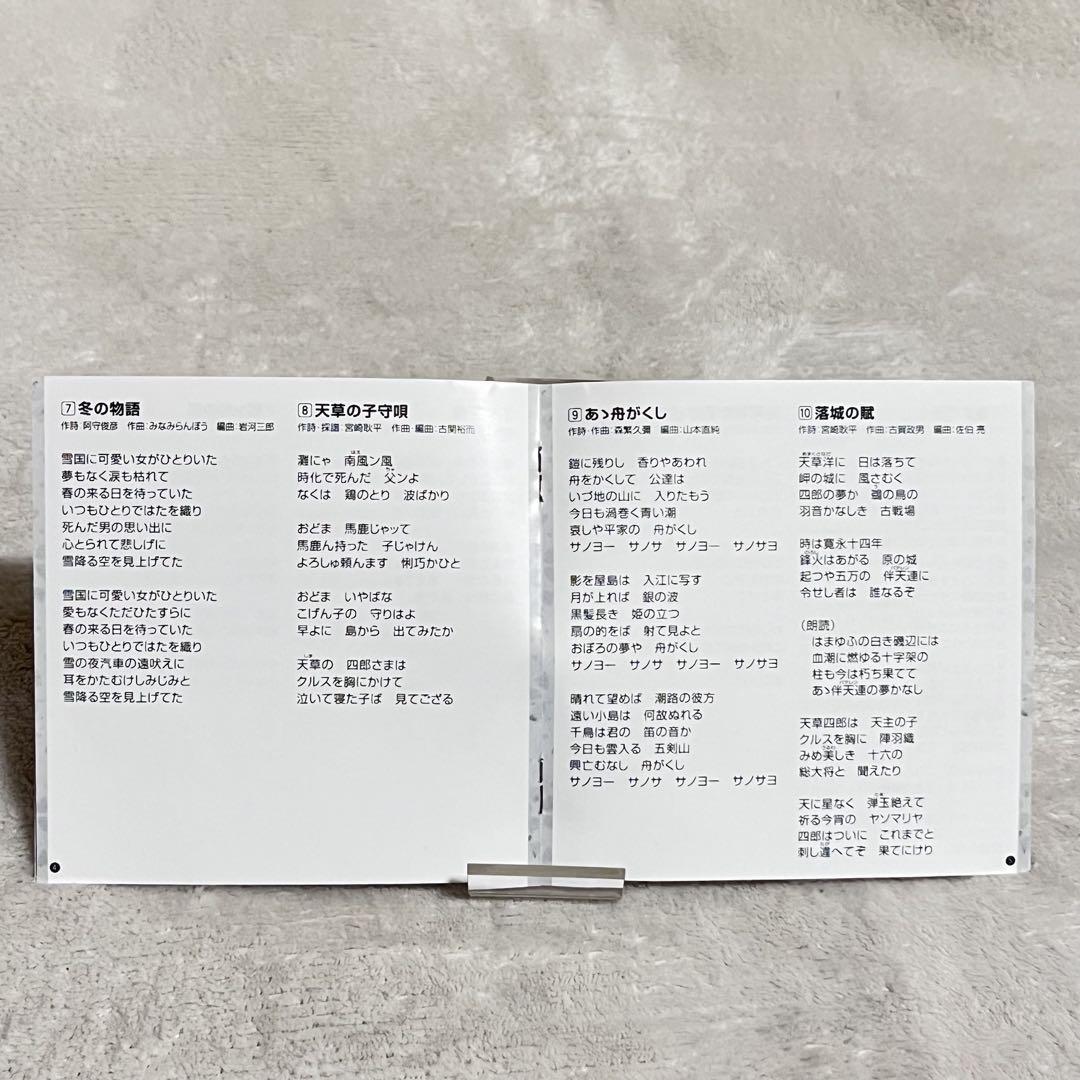 7 冬の物語
作詩：阿守俊彦　作曲：みなみらんぼう　編曲：岩河三郎
雪国に可愛い女がひとりいた
夢もなく涙も枯れて
春の来る日を待っていた
いつもひとりではたを織り
死んだ男の思い出に
心とられて悲しげに
雪降る空を見上げてた
雪国に可愛い女がひとりいた
愛もなくただひたすらに
春の来る日を待っていた
いつもひとりではたを織り
雪の夜汽車の遠吠えに
耳をかたむけしみじみと
雪降る空を見上げてた
4
8 天草の子守唄
作詩・採譜：宮崎耿平　作曲・編曲：古関裕而
灘にゃ　南風ン風
時化で死んだ　父ンよ
なくは　鶏のとり　波ばかり
おどま　馬鹿じゃッて
馬鹿ん持った　子じゃけん
よろしゅ頼んます　悧巧かひと
おどま　いやばな
こげん子の　守りはよ
早よに　島から　出てみたか
天草の　四郎さまは
クルスを胸にかけて
泣いて寝た子ば　見てござる
9 あゝ舟がくし
作詩・作曲：森繁久彌　編曲：山本直純
鎧に残りし　香りやあわれ
舟をかくして　公達は
いづ地の山に　入りたもう
今日も渦巻く青い潮
哀しや平家の　舟がくし
サノヨー　サノサ　サノヨー　サノサヨ
影を屋島は　入江に写す
月が上れば　銀の波
黒髪長き　姫の立つ
扇の的をば　射て見よと
おぼろの夢や　舟がくし
サノヨー　サノサ　サノヨー　サノサヨ
晴れて望めば　潮路の彼方
遠い小島は　何故ぬれる
千鳥は君の　笛の音か
今日も雲入る　五剣山
興亡むなし　舟がくし
サノヨー　サノサ　サノヨー　サノサヨ
10 落城の賦
作詩：宮崎耿平　作曲：古賀政男　編曲：佐伯 亮
天草洋に　日は落ちて
岬の城に　風さむく
四郎の夢か　鵜の鳥の
羽音かなしき　古戦場
時は寛永十四年
烽火はあがる　原の城
起つや五万の　伴天連に
令せし者は　誰なるぞ
（朗読）
はまゆふの白き磯辺には
血潮に燃ゆる十字架の
柱も今は朽ち果てて
あゝ伴天連の夢かなし
天草四郎は　天主の子
クルスを胸に　陣羽織
みめ美しき　十六の
総大将と　聞えたり
天に星なく　弾玉絶えて
祈る今宵の　ヤソマリヤ
四郎はついに　これまでと
刺し違へてぞ　果てにけり
5